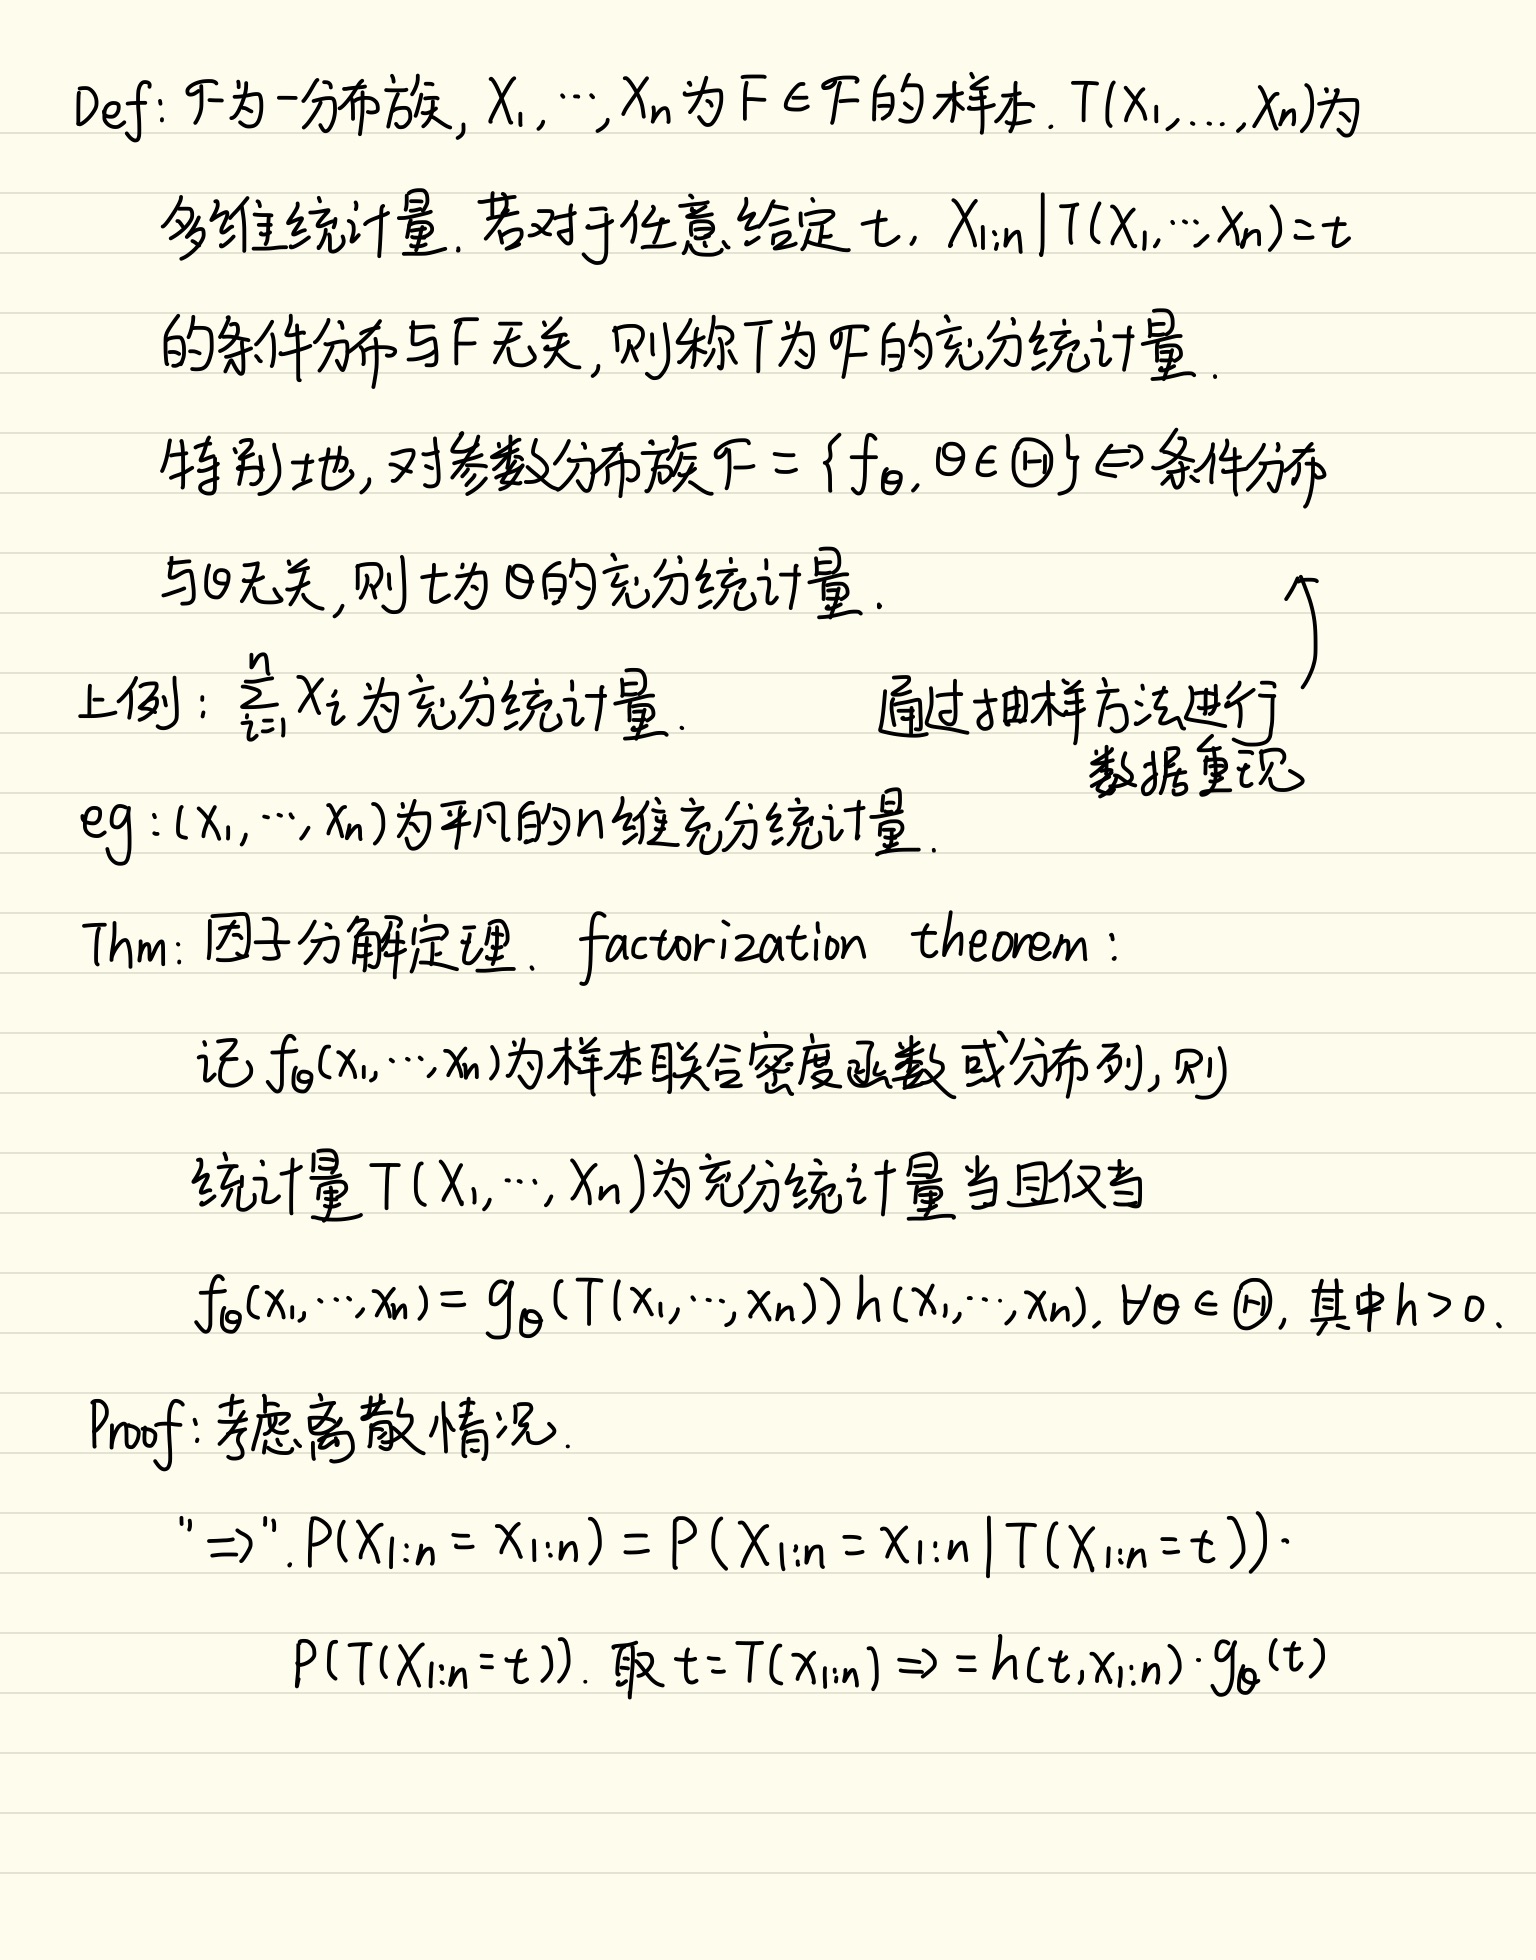 Def: 𝓕为一分布族, X₁, ⋯, Xₙ为F∈𝓕的样本. T(X₁,…,Xₙ)为
多维统计量. 若对于任意给定t, X₁:ₙ|T(X₁,⋯,Xₙ)=t
的条件分布与F无关, 则称T为𝓕的充分统计量.
特别地, 对参数分布族𝓕 = {f_θ, θ∈Θ} ⇔ 条件分布
与θ无关, 则t为θ的充分统计量.
上例: ∑ᵢ₌₁ⁿ Xᵢ为充分统计量.
通过抽样方法进行
数据重现
eg: (X₁, ⋯, Xₙ)为平凡的n维充分统计量.
Thm: 因子分解定理. factorization theorem:
记f_θ(x₁,⋯,xₙ)为样本联合密度函数或分布列, 则
统计量T(X₁,⋯, Xₙ)为充分统计量当且仅当
f_θ(x₁,⋯,xₙ) = g_θ(T(x₁,⋯,xₙ))h(x₁,⋯,xₙ). ∀θ∈Θ, 其中h>0.
Proof: 考虑离散情况.
"⇒". P(X₁:ₙ = x₁:ₙ) = P(X₁:ₙ = x₁:ₙ|T(X₁:ₙ=t))·
P(T(X₁:ₙ=t)). 取t=T(x₁:ₙ) ⇒ = h(t,x₁:ₙ)·g_θ(t)